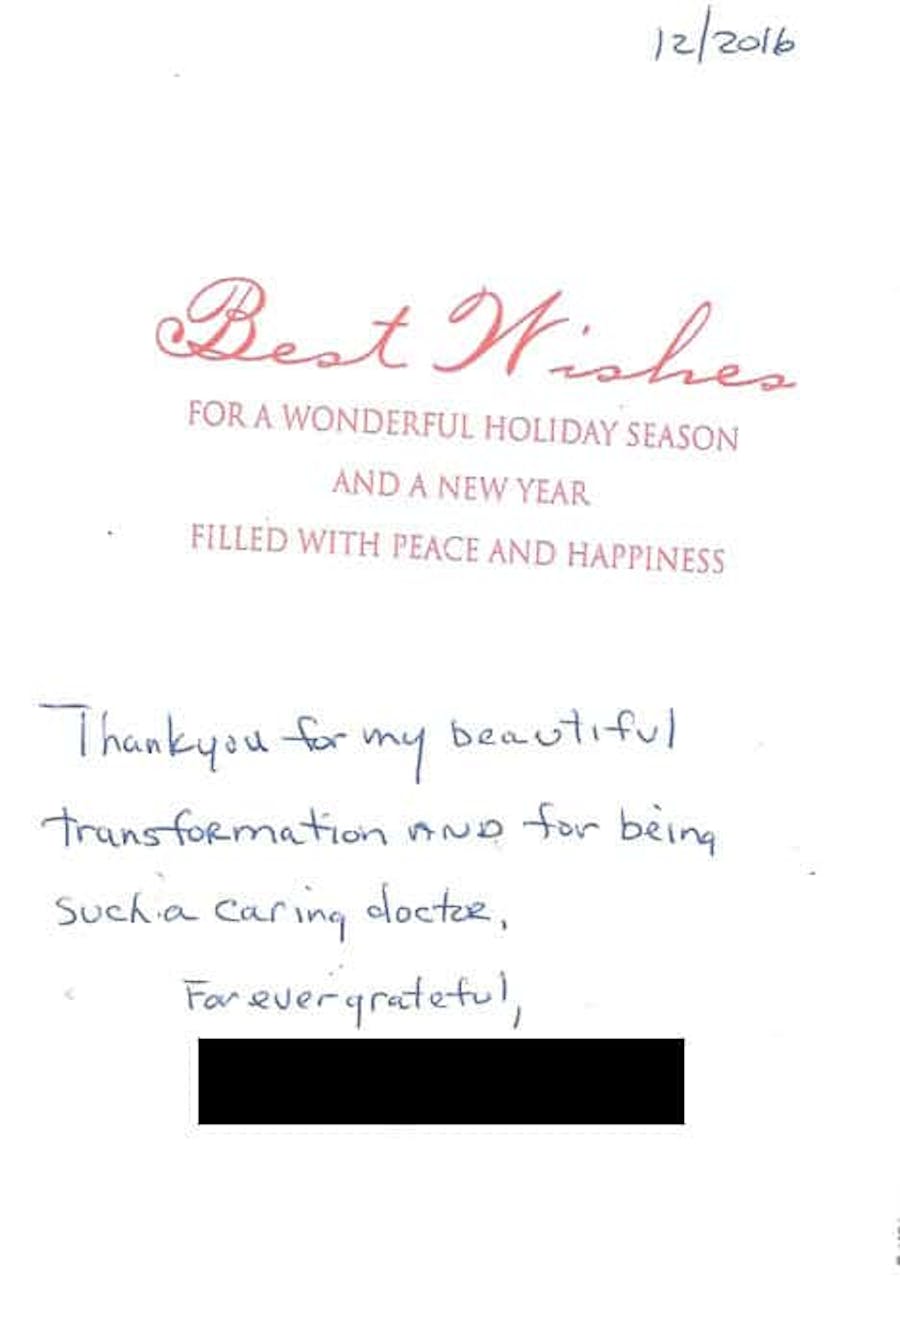 12/2016
Best Wishes
FOR A WONDERFUL HOLIDAY SEASON
AND A NEW YEAR
FILLED WITH PEACE AND HAPPINESS
Thankyou for my beautiful
transformation AND for being
such a caring doctor,
Forever grateful,